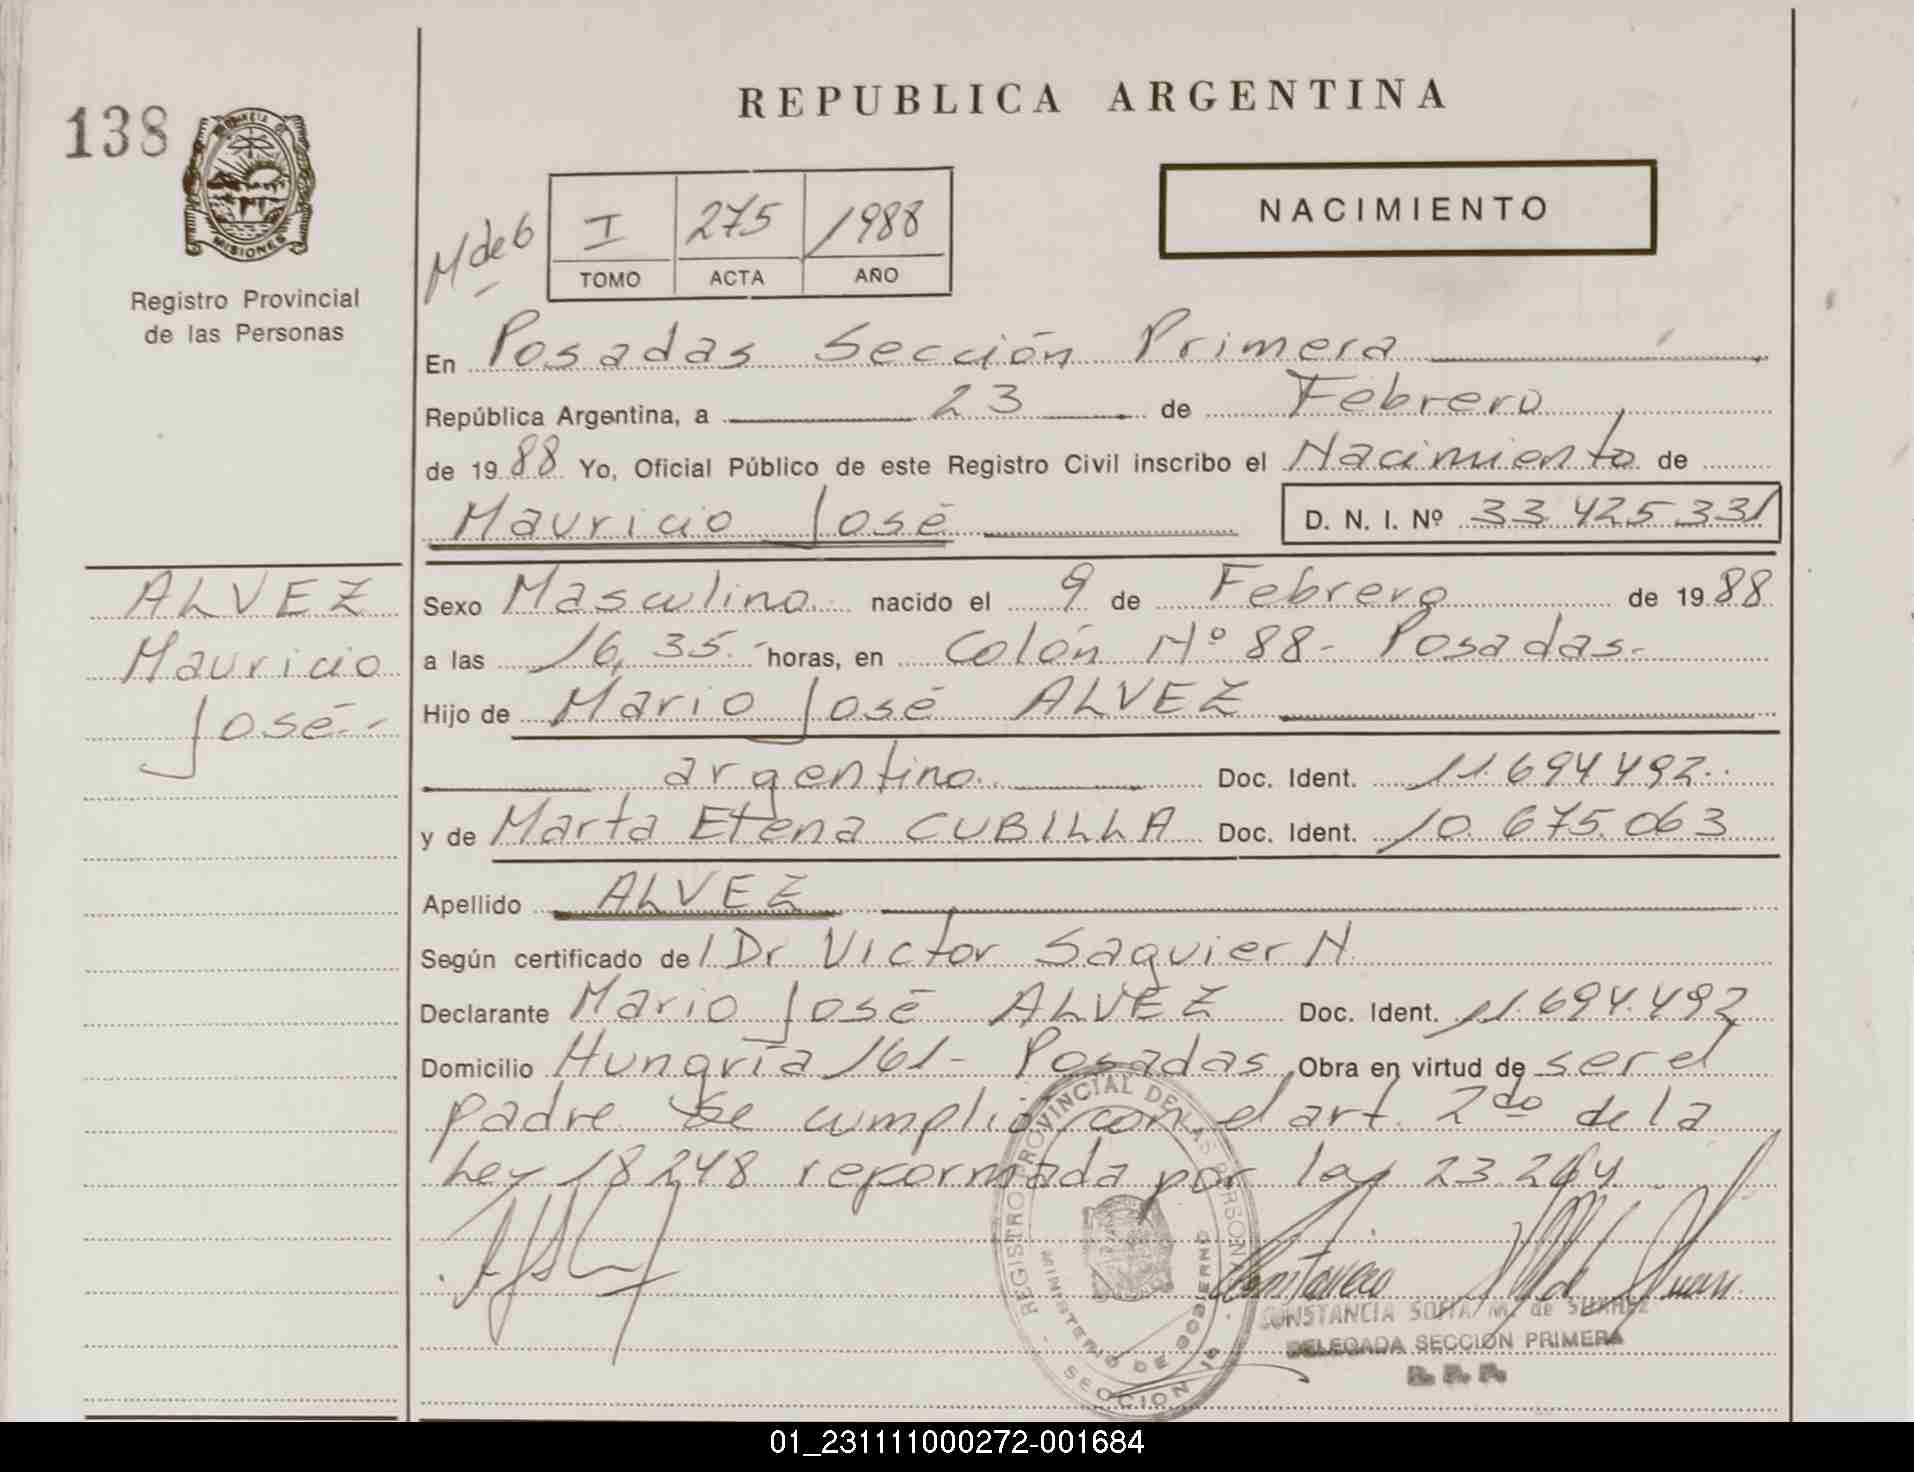 138
PROVINCIA DE
MISIONES
Registro Provincial
de las Personas
REPUBLICA ARGENTINA
M de 6
I 275 1988
TOMO ACTA AÑO
NACIMIENTO
En Posadas Sección Primera
República Argentina, a 23 de Febrero
de 1988 Yo, Oficial Público de este Registro Civil inscribo el Nacimiento de
Mauricio José D. N. I. Nº 33.425.331
ALVEZ
Mauricio
José.-
Sexo Masculino nacido el 9 de Febrero de 1988
a las 16,35.- horas, en Colón Nº 88- Posadas.-
Hijo de Mario José ALVEZ
argentino. Doc. Ident. 11.694.492.
y de Marta Elena CUBILLA Doc. Ident. 10.675.063
Apellido ALVEZ
Según certificado de l Dr Victor Saguier N.
Declarante Mario José ALVEZ Doc. Ident. 11.694.492
Domicilio Hungría 161- Posadas Obra en virtud de ser el
padre. Se cumplió con el art. 2do de la
Ley 18248 reformada por ley 23.264.
REGISTRO PROVINCIAL DE LAS PERSONAS
MINISTERIO DE GOBIERNO
SECCION 1ª
CONSTANCIA SOFIA M. de SUAREZ
DELEGADA SECCION PRIMERA
R. P. P.
01_231111000272-001684